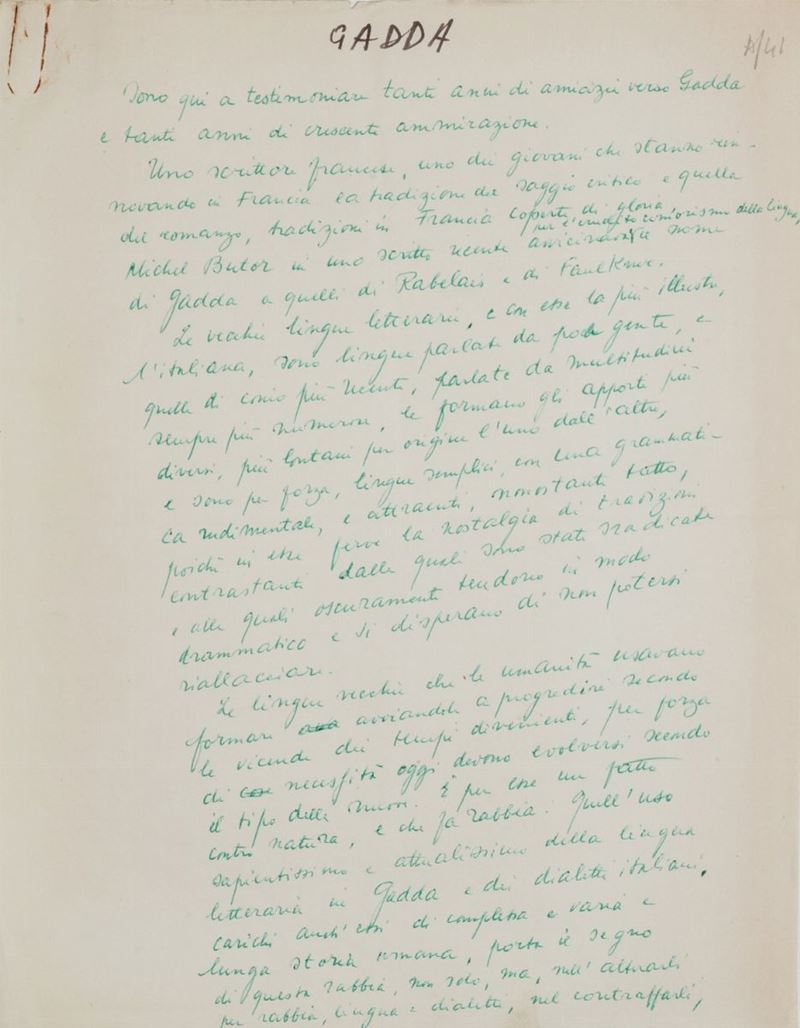 GADDA
Sono qui a testimoniare tanti anni di amicizia verso Gadda
e tanti anni di crescente ammirazione.
Uno scrittore francese, uno dei giovani che stanno rin-
novando in Francia la tradizione del saggio critico e quella
del romanzo, tradizioni in Francia coperte di gloria
della lingua,
Michel Butor in uno scritto recente nome
di Gadda a quelli di Rabelais e di Faulkner.
Le vecchie lingue letterarie, e con esse la più illustre,
l'italiana, sono lingue parlate da poca gente, e
quelle di conio più recente, parlate da moltitudini
sempre più numerose, le formano gli apporti più
diversi, più lontani per origine l'uno dall'altro,
e sono per forza, lingue semplici, con una grammati-
ca rudimentale, e attraenti, nonostante tutto,
poiché in esse ferve la nostalgia di tradizioni
contrastanti dalle quali sono state sradicate
e alle quali oscuramente tendono in modo
drammatico e si disperano di non potersi
riallacciare.
Le lingue vecchie che le umanità usavano
formare avviandole a progredire secondo
le vicende dei tempi divenienti, per forza
di necessità oggi devono evolversi secondo
il tipo delle nuove. È per esse un fatto
contro natura, e che fa rabbia. Quell'uso
sapientissimo e attualissimo della lingua
letteraria in Gadda e dei dialetti italiani,
carichi anch'essi di complessa e varia e
lunga storia umana, porta il segno
di questa rabbia, non solo, ma, nell'attuarli
per rabbia, lingua e dialetti, nel contraffarli,